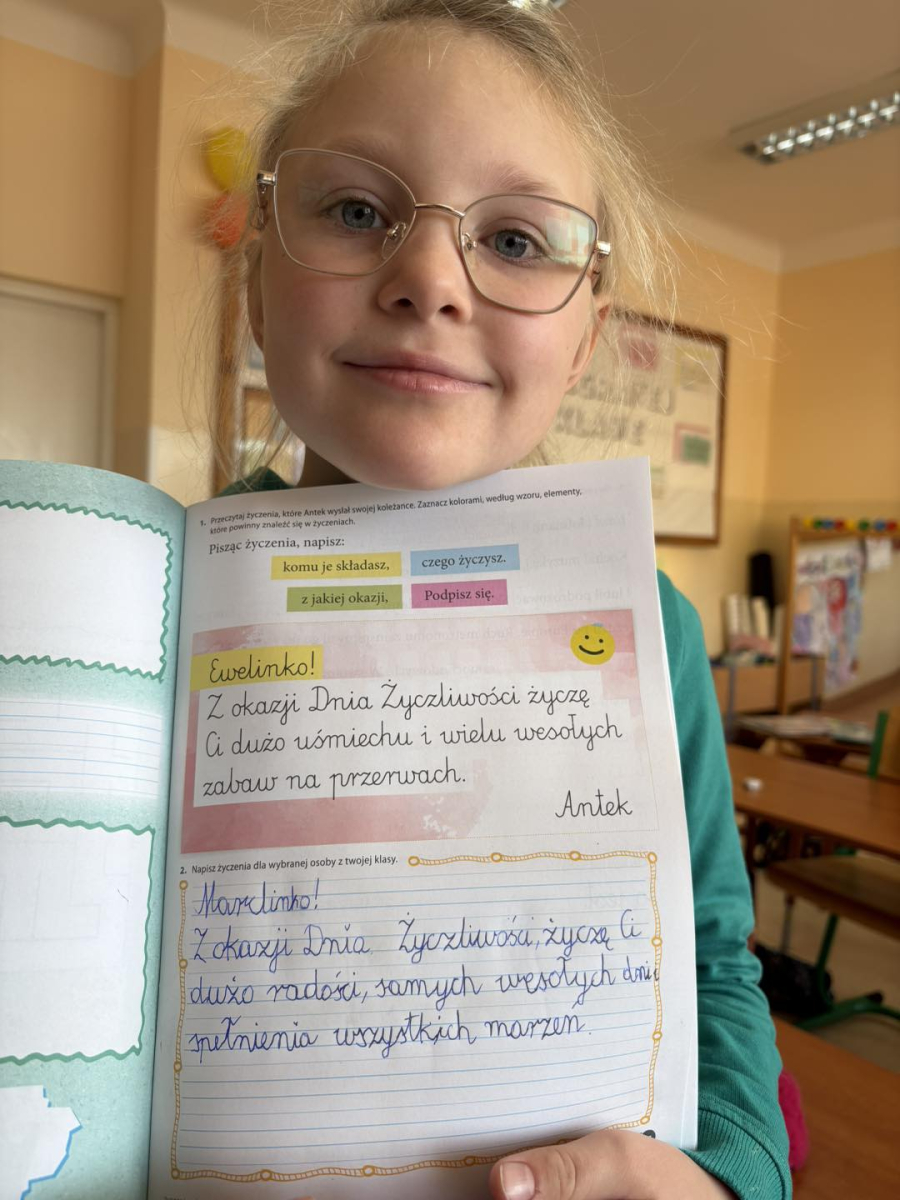 1. Przeczytaj życzenia, które Antek wysłał swojej koleżance. Zaznacz kolorami, według wzoru, elementy,
które powinny znaleźć się w życzeniach.
Pisząc życzenia, napisz:
komu je składasz,
czego życzysz.
z jakiej okazji,
Podpisz się.
Ewelinko!
Z okazji Dnia Życzliwości życzę
Ci dużo uśmiechu i wielu wesołych
zabaw na przerwach.
Antek
2. Napisz życzenia dla wybranej osoby z twojej klasy.
Marclinko!
Z okazji Dnia Życzliwości, życzę Ci
dużo radości, samych wesołych dni,
spełnienia wszystkich marzeń.